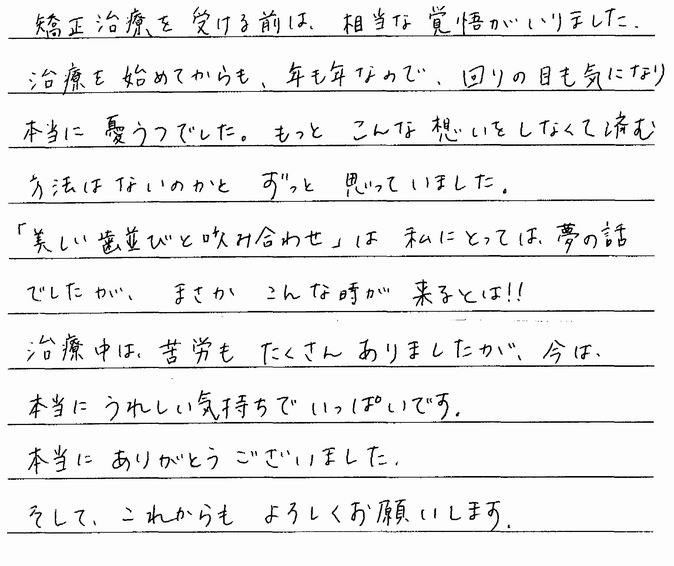 矯正治療を受ける前は、相当な覚悟がいりました.
治療を始めてからも、年も年なので、回りの目も気になり
本当に憂うつでした。もっとこんな想いをしなくて済む
方法はないのかとずっと思っていました。
「美しい歯並びと吹み合わせ」は私にとっては、夢の話
でしたが、まさかこんな時が来るとは!!
治療中は、苦労もたくさんありましたが、今は、
本当にうれしい気持ちでいっぱいです.
本当にありがとうございました.
そして、これからもよろしくお願いします.